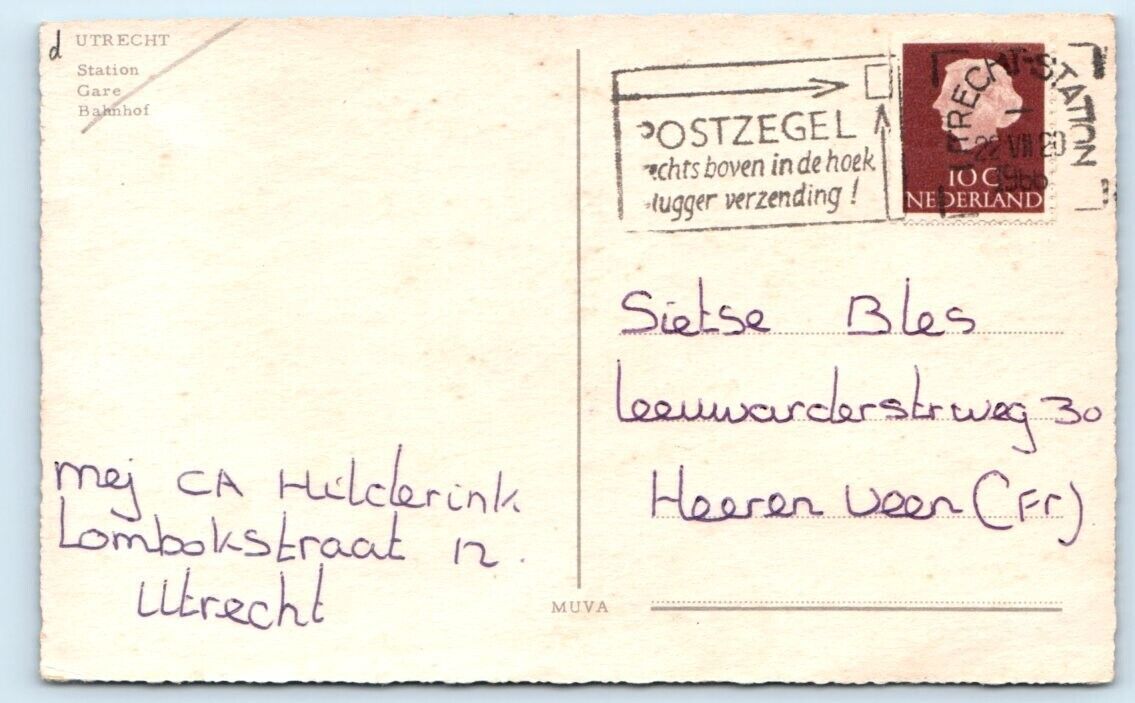 d
UTRECHT
Station
Gare
Bahnhof
POSTZEGEL
rechts boven in de hoek
vlugger verzending!
UTRECHT-STATION
22 VII 20
1966
10 C
NEDERLAND
Sietse Bles
Leeuwarderstrweg 30
Heeren veen (Fr)
mej CA Hilderink
Lombokstraat 12.
Utrecht
MUVA